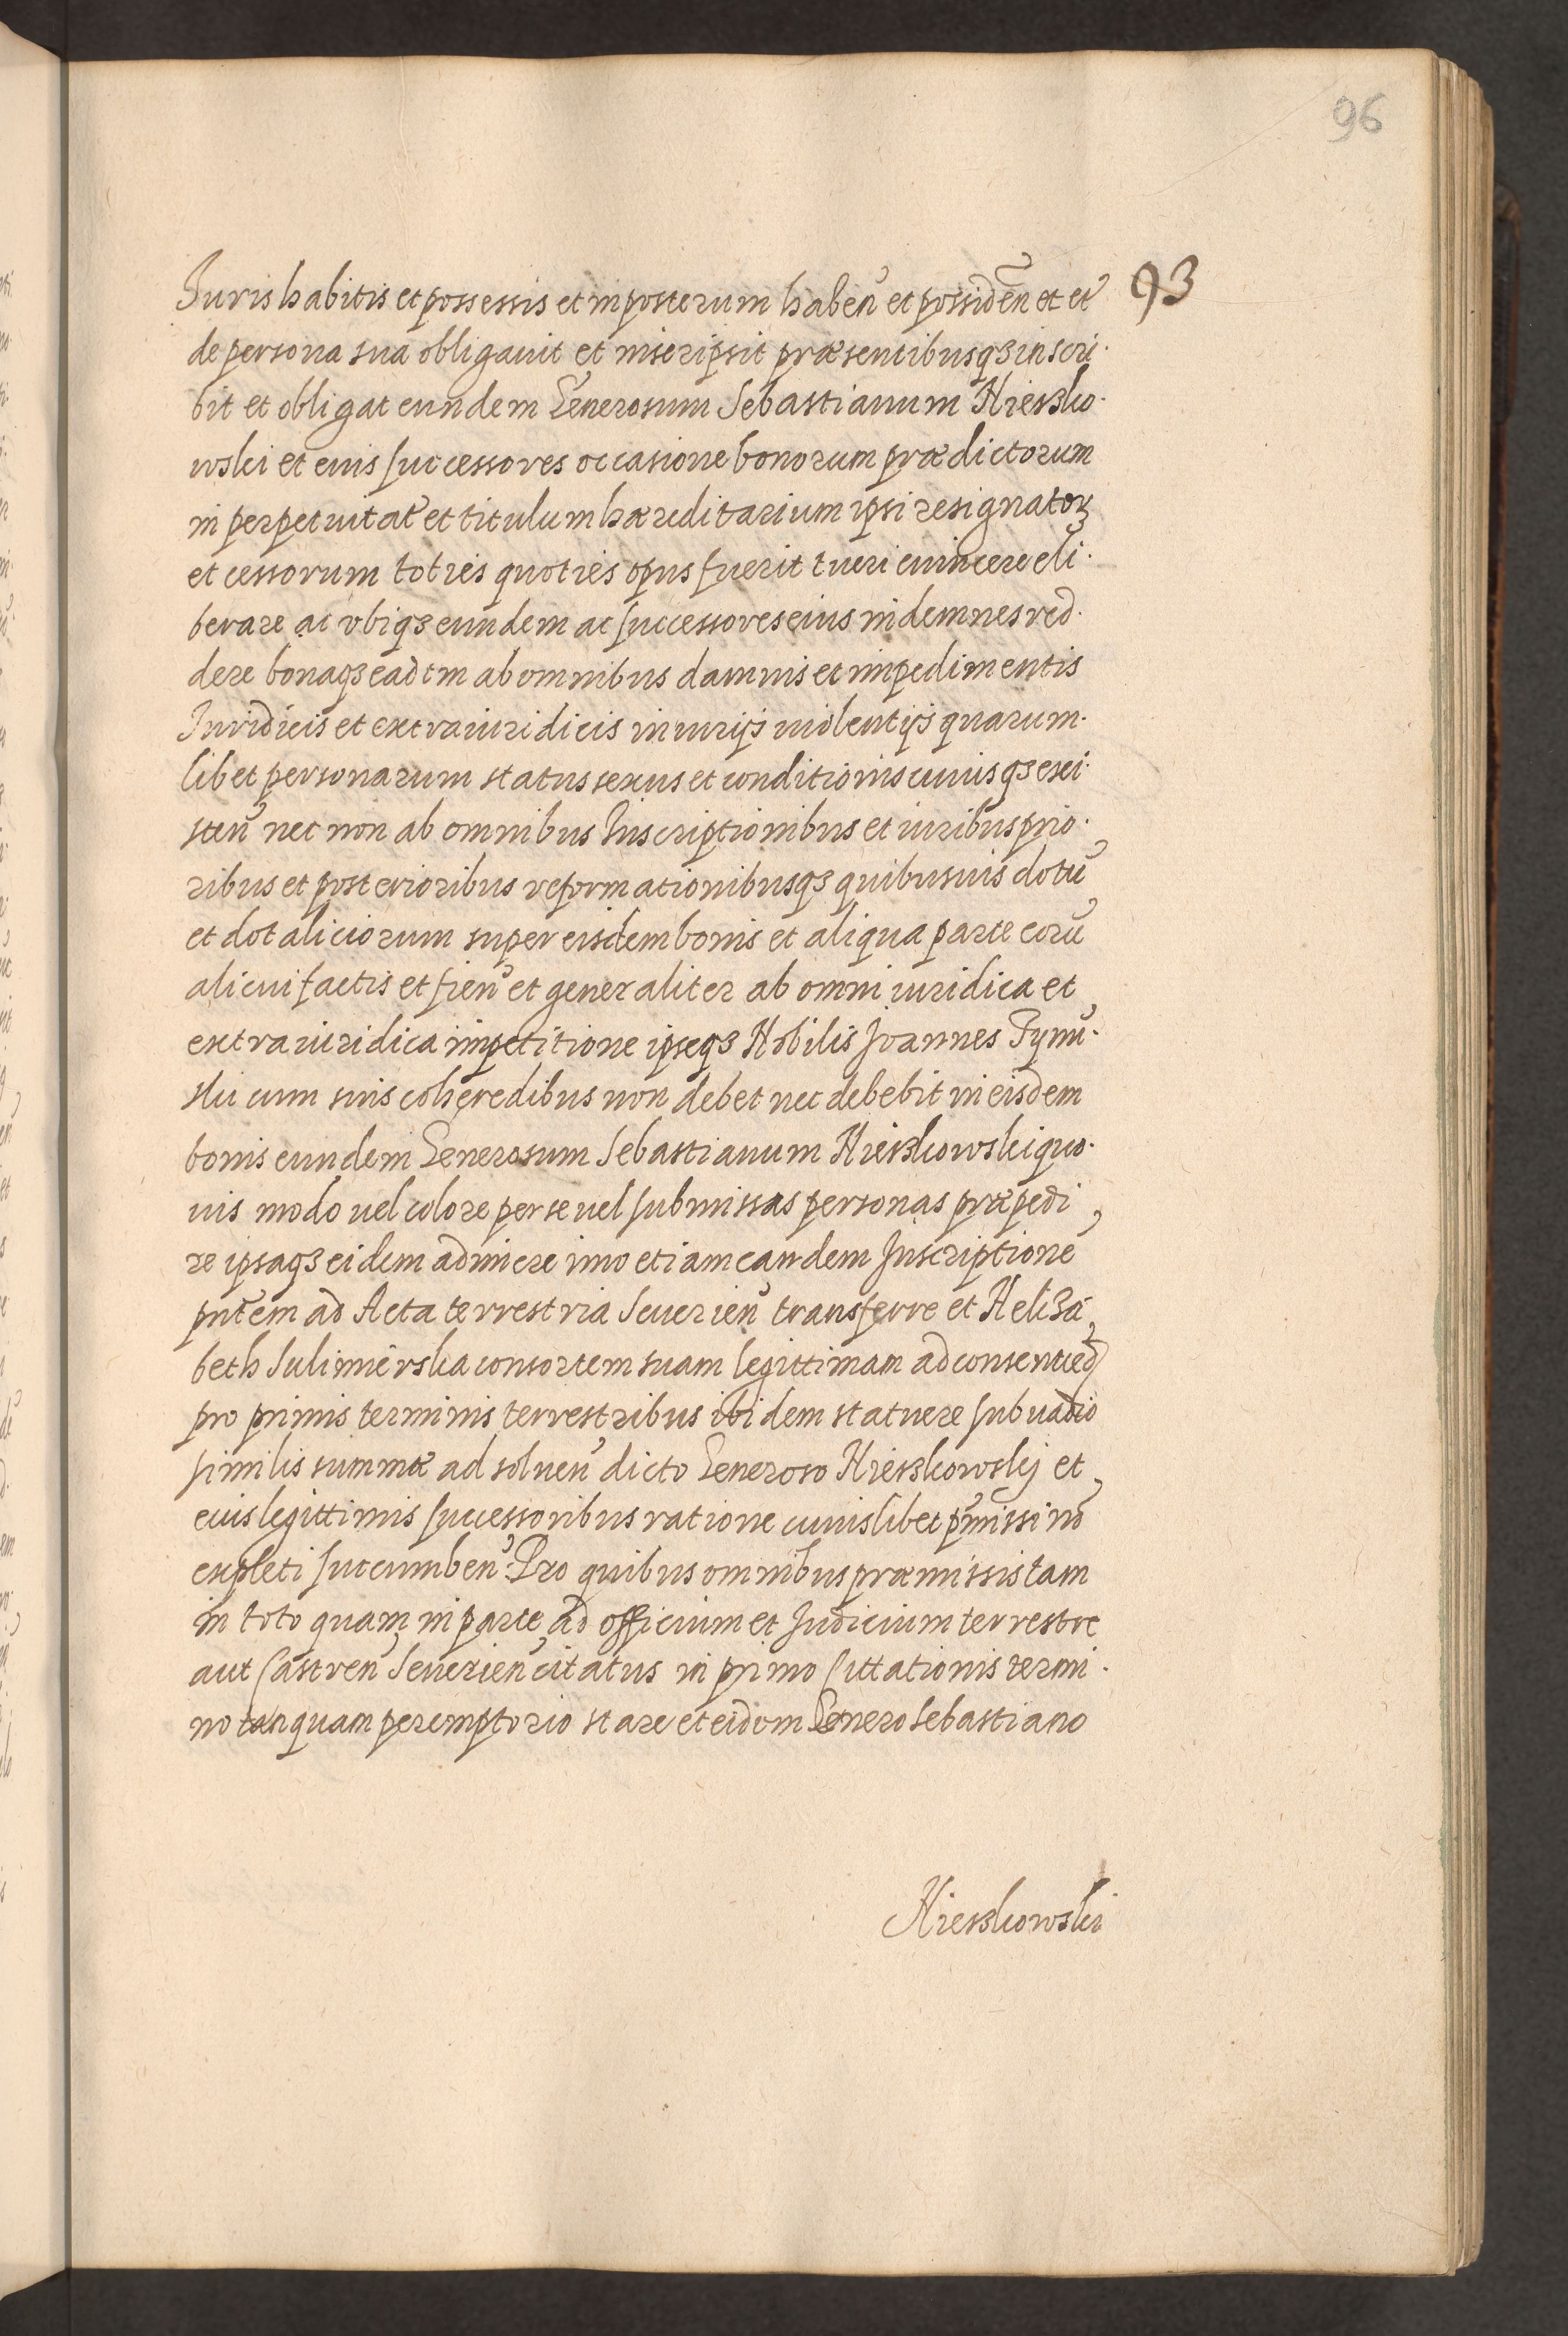 96
93
Iuris habitis et possessis et in posterum haben̄ et possiden̄ et et
de persona sua obligauit et inscripsit præsentibusqȝ inscri-
bit et obligat eundem Generosum Sebastianum Mieszko-
wski et eius successores occasione bonorum prædictorum
in perpetuitat̄ et titulum hæreditarium ipsi resignatoꝝ
et cessorum toties quoties opus fuerit tueri euincere eli-
berare ac vbiqȝ eundem ac successores eius indemnes red-
dere bonaqȝ eadem ab omnibus damnis et impedimentis
Iuridicis et extraiuridicis iniurijs uiolentijs quarum-
libet personarum status sexus et conditionis cuiusqȝ exi-
sten̄ nec non ab omnibus Inscriptionibus et iuribus prio-
ribus et posterioribus reformationibusqȝ quibusuis dotū
et dotaliciorum super eisdem bonis et aliqua parte eorū
alicui factis et fien̄ et generaliter ab omni iuridica et
extraiuridica impetitione ipseqȝ Nobilis Joannes
cum suis coheredibus non debet nec debebit in eisdem
bonis eundem Generosum Sebastianum Mieszkowski quo-
uis modo uel colore per se uel submissas personas præpedi
re ipsaqȝ eidem adimere imo etiam eandem Inscriptionē
pn̄tem ad Acta terrestria Seuerien̄ transferre et Heliza
beth Sulimierska consortem suam legittimam ad consentied̄
pro primis terminis terrestribus ibidem statuere sub uadio
similis summæ ad soluen̄ dicto Generoso Mieszkowskj et
eius legittimis successoribus ratione cuiuslibet p̄missi nō
expleti succumben̄. Pro quibus omnibus præmissis tam
in toto quam in parte ad officium et Iudicium terrestre
aut Castren̄ Seuerien̄ citatus in primo Cittationis termi-
no tanquam peremptorio stare et eidem Genero Sebastiano
Mieszkowski